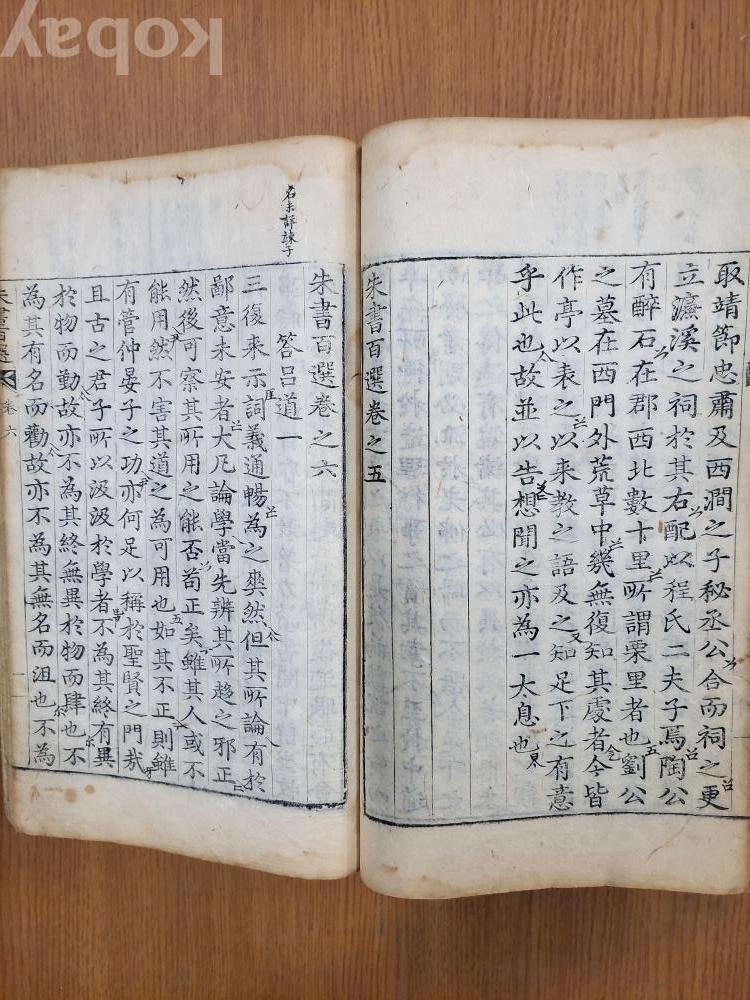 kobay
取靖節忠肅及西澗之子秘丞公合而祠之更
立濂溪之祠於其右配以程氏二夫子焉陶公
有醉石在郡西北數十里所謂栗里者也劉公
之墓在西門外荒草中幾無復知其處者今皆
作亭以表之以來教之語及之又知足下之有意
乎此也故並以告想聞之亦為一太息也
朱書百選卷之五
名未詳諫子
朱書百選卷之六
答呂道一
三復來示詞義通暢為之爽然但其所論有於
鄙意未安者大凡論學當先辨其所趨之邪正
然後可察其所用之能否苟正矣雖其人或不
能用然不害其道之為可用也如其不正則雖
有管仲晏子之功亦何足以稱於聖賢之門哉
且古之君子所以汲汲於學者不為其終有異
於物而勤故亦不為其終無異於物而肆也不
為其有名而勸故亦不為其無名而沮也不為
朱書百選 卷六